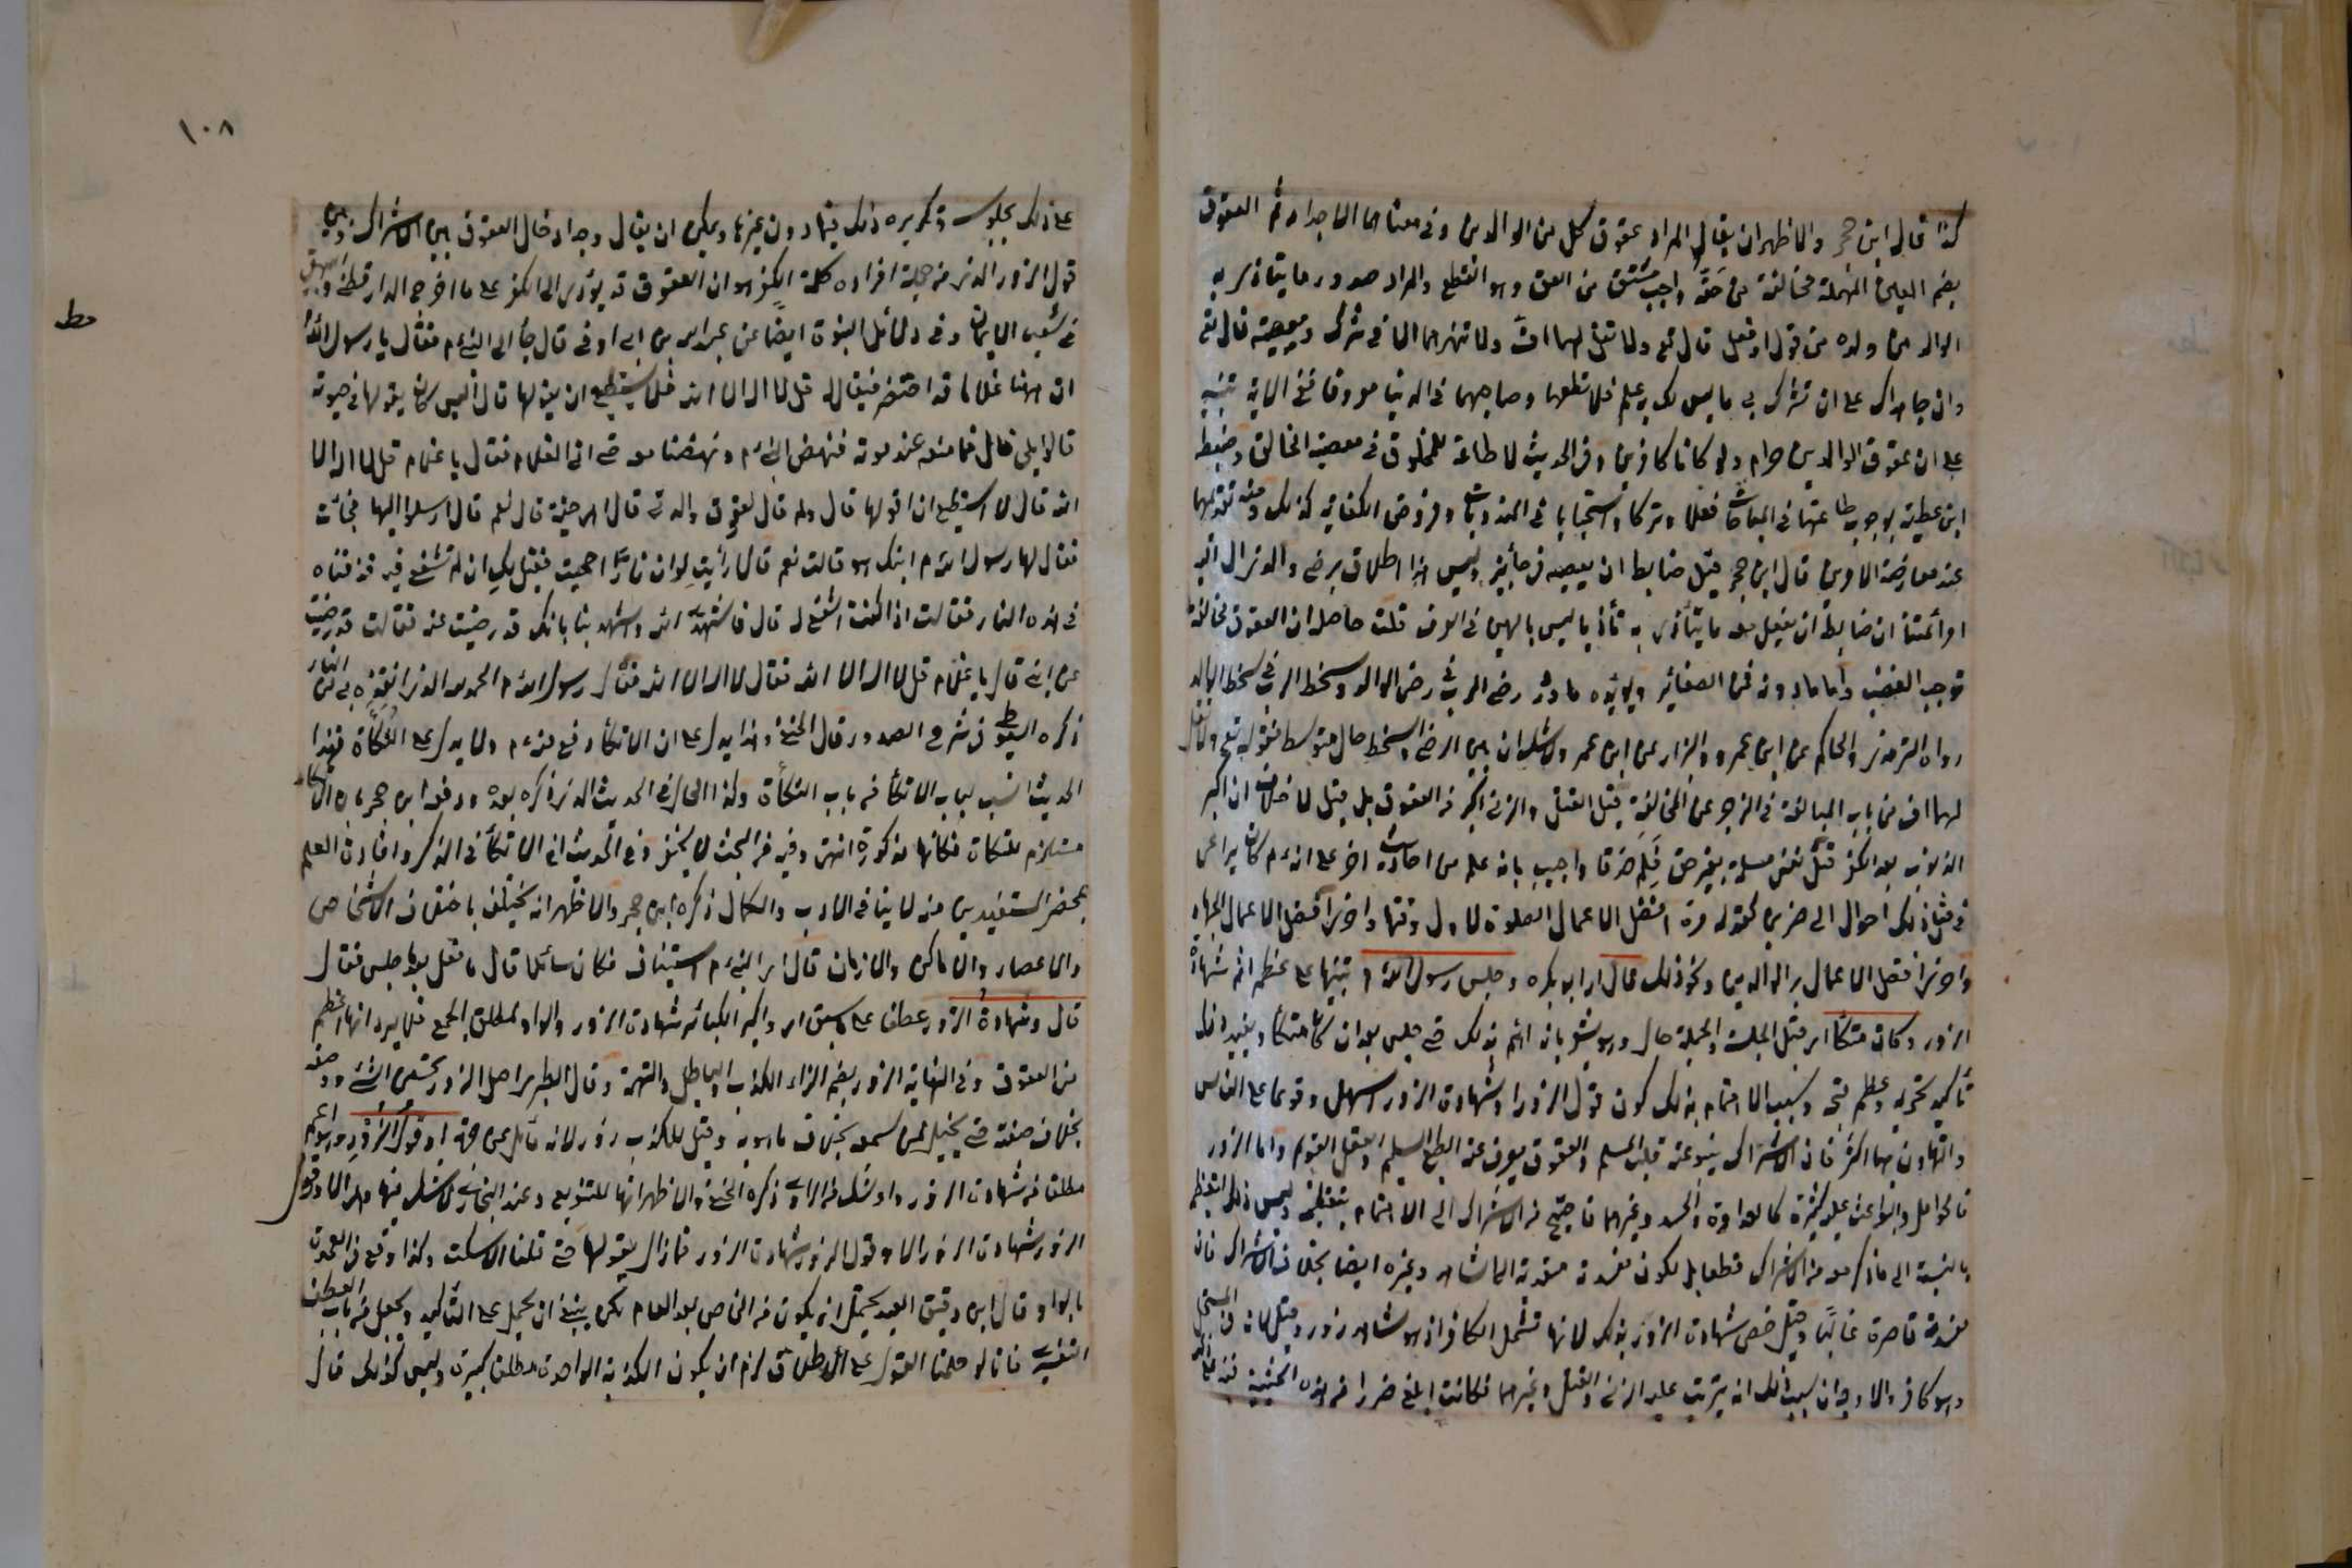 كذا قال ابن حجر والاظهر ان يقال المراد عقوق كل من الوالدين وفى معناهما الاجداد ثم العقوق
بضم العين المهملة مخالفة من حقه واجب مشتق من العق وهو القطع والمراد صدور ما يتاذى به
الوالد من ولده من قول او فعل قال تع ولا تقل لهما اف ولا تنهرهما الا فى شرك ومعصية قال تع
وان جاهداك على ان تشرك بى ما ليس لك به علم فلا تطعهما وصاحبهما فى الدنيا معروفا ففى الاية تنبيه
على ان عقوق الوالدين حرام ولو كانا كافرين وفى الحديث لا طاعة للمخلوق فى معصية الخالق وضبطه
ابن عطية بوجوب طاعتهما فى المباحات فعلا وتركا واستحبابا فى المندوبات وفروض الكفاية كذلك ومنه تقديمهما
عند معارضة الامرين قال ابن حجر قيل ضابطه ان يعصيه فى جائز وليس هذا اطلاق مرضى والذى ال اليه
امر ائمتنا ان ضابطه ان يفعل معه ما يتأذى به تأذيا ليس بالهين فى العرف قلت حاصله ان العقوق مخالفة
توجب الغضب واما ما دونه فمن الصغائر ويؤيده ما ورد رضى الرب فى رضى الوالد وسخط الرب فى سخط الوالد
رواه الترمذى والحاكم عن ابن عمرو والبزار عن ابن عمر ولا شك ان بين الرضى والسخط حال متوسط فقوله تع ولا تقل
لهما اف من باب المبالغة فى الزجر عن المخالفة قيل القتل والزنى اكبر من العقوق بل قيل لا خلاف ان اكبر
الذنوب بعد الكفر قتل نفس مسلمة بغير حق فلم حذفا واجيب بانه علم من احاديث اخر على انه عم كان يراعى
فى مثل ذلك احوال الحاضرين كقوله مرة افضل الاعمال الصلوة لاول وقتها واخرى افضل الاعمال الجهاد
واخرى افضل الاعمال بر الوالدين ونحو ذلك قال اى ابو بكره وجلس رسول الله م تنبيها على عظم اثم شهادة
الزور وكان متكئا اى قبل الجلسة والجملة حال وهو يشعر بانه اهتم بذلك حتى جلس بعد ان كان متكئا ويفيد ذلك
تأكيد تحريمه وعظم قبحه وسبب الاهتمام بذلك كون قول الزور او شهادة الزور اسهل وقوعا على الناس
والتهاون بها اكثر فان الاشراك ينبو عنه قلب المسلم والعقوق يصرف عنه الطبع السليم والعقل القويم واما الزور
فالحوامل والبواعث عليه كثيرة كالعداوة والحسد وغيرهما فاحتيج الى الاهتمام بتعظيمه وليس ذلك لتعظيمه
بالنسبة الى ما ذكر معه من الاشراك قطعا بل لكون مفسدته متعدية الى الشاهد وغيره ايضا بخلاف الاشراك فان
مفسدته قاصرة غالبا وقيل خص شهادة الزور بذلك لانها تشمل الكافر اذ هو شاهد زور وقيل لانه فى المستحل
وهو كافر والاوجه ان سبب ذلك انه يترتب عليه الزنى والقتل وغيرهما فكانت ابلغ ضررا من هذه الحيثية فنبه
١٠٨
على ذلك بجلوسه وتكريره ذلك فيها دون غيرها ويمكن ان يقال وجه ادخال العقوق بين الاشراك وبين
قول الزور الذى من جملة افراده كلمة الكفر هو ان العقوق قد يؤدى الى الكفر على ما اخرجه الدارقطنى والبيهقى
فى شعب الايمان وفى دلائل النبوة ايضا عن عبد الله بن ابى اوفى قال جاء الى النبى م فقال يا رسول الله
ان ههنا غلاما قد احتضر فيقال له قل لا اله الا الله فلا يستطيع ان يقولها قال أليس كان يقولها فى حيوته
قالوا بلى قال فما منعه عند موته فنهض النبى م ونهضنا معه حتى اتى الغلام فقال يا غلام قل لا اله الا
الله قال لا استطيع ان اقولها قال ولم قال لعقوق والدتى قال أهى حية قال نعم قال ارسلوا اليها فجاءت
فقال لها رسول الله م ابنك هو قالت نعم قال أرأيت لو ان نارا اججت فقيل لك ان لم تشفعى فيه قذفناه
فى هذه النار فقالت اذا كنت اشفع له قال فاشهدى الله واشهدينا بانك قد رضيت عنه فقالت قد رضيت
عن ابنى قال يا غلام قل لا اله الا الله فقال لا اله الا الله فقال رسول الله م الحمد لله الذى انقذه بى من النار
ذكره السيوطى فى شرح الصدور قال الحنفى وهذا يدل على ان الاتكاء وقع منه م ولا يدل على التكأة فهذا
الحديث انسب لباب الاتكاء من باب التكأة وكذا الحال فى الحديث الذى ذكره بعده ودفعه ابن حجر بان الاتكاء
مستلزم للتكأة فكانها مذكورة انتهى وفيه من البحث لا يخفى وفى الحديث ان الاتكاء فى الذكر وافادة العلم
بمحضر المستفيدين منه لا ينافى الادب والكمال ذكره ابن حجر والاظهر انه يختلف باختلاف الاشخاص
والاعصار والاماكن والازمان قال اى النبى م استيناف فكان سائلا قال ما فعل بعد ما جلس فقال
قال وشهادة الزور عطف على ما سبق اى واكبر الكبائر شهادة الزور والواو لمطلق الجمع فلا يرد انها اعظم
من العقوق وفى النهاية الزور بضم الزاء الكذب والباطل والتهمة وقال الطبرى اصل الزور تحسين الشئ ووصفه
بخلاف صفته حتى يخيل لمن سمعه بخلاف ما هو به وقيل للكذب زور لانه مائل عن جهته او قول الزور وهو اعم
مطلقا من شهادة الزور واو شك من الراوى ذكره الحنفى والاظهر انها للتنويع وعند البخارى لا شك فيها وهى الا وقول
الزور شهادة الزور الا وقول الزور شهادة الزور فما زال يقولها حتى قلنا لا يسكت وكذا وقع فى العمدة
بالواو وقال ابن دقيق العيد يحتمل ان يكون من الخاص بعد العام لكن ينبغى ان يحمل على التأكيد ويجعل من باب العطف
التفسيرى فانا لو حملنا القول على الاطلاق لزم ان يكون الكذبة الواحدة مطلقا كبيرة وليس كذلك قال